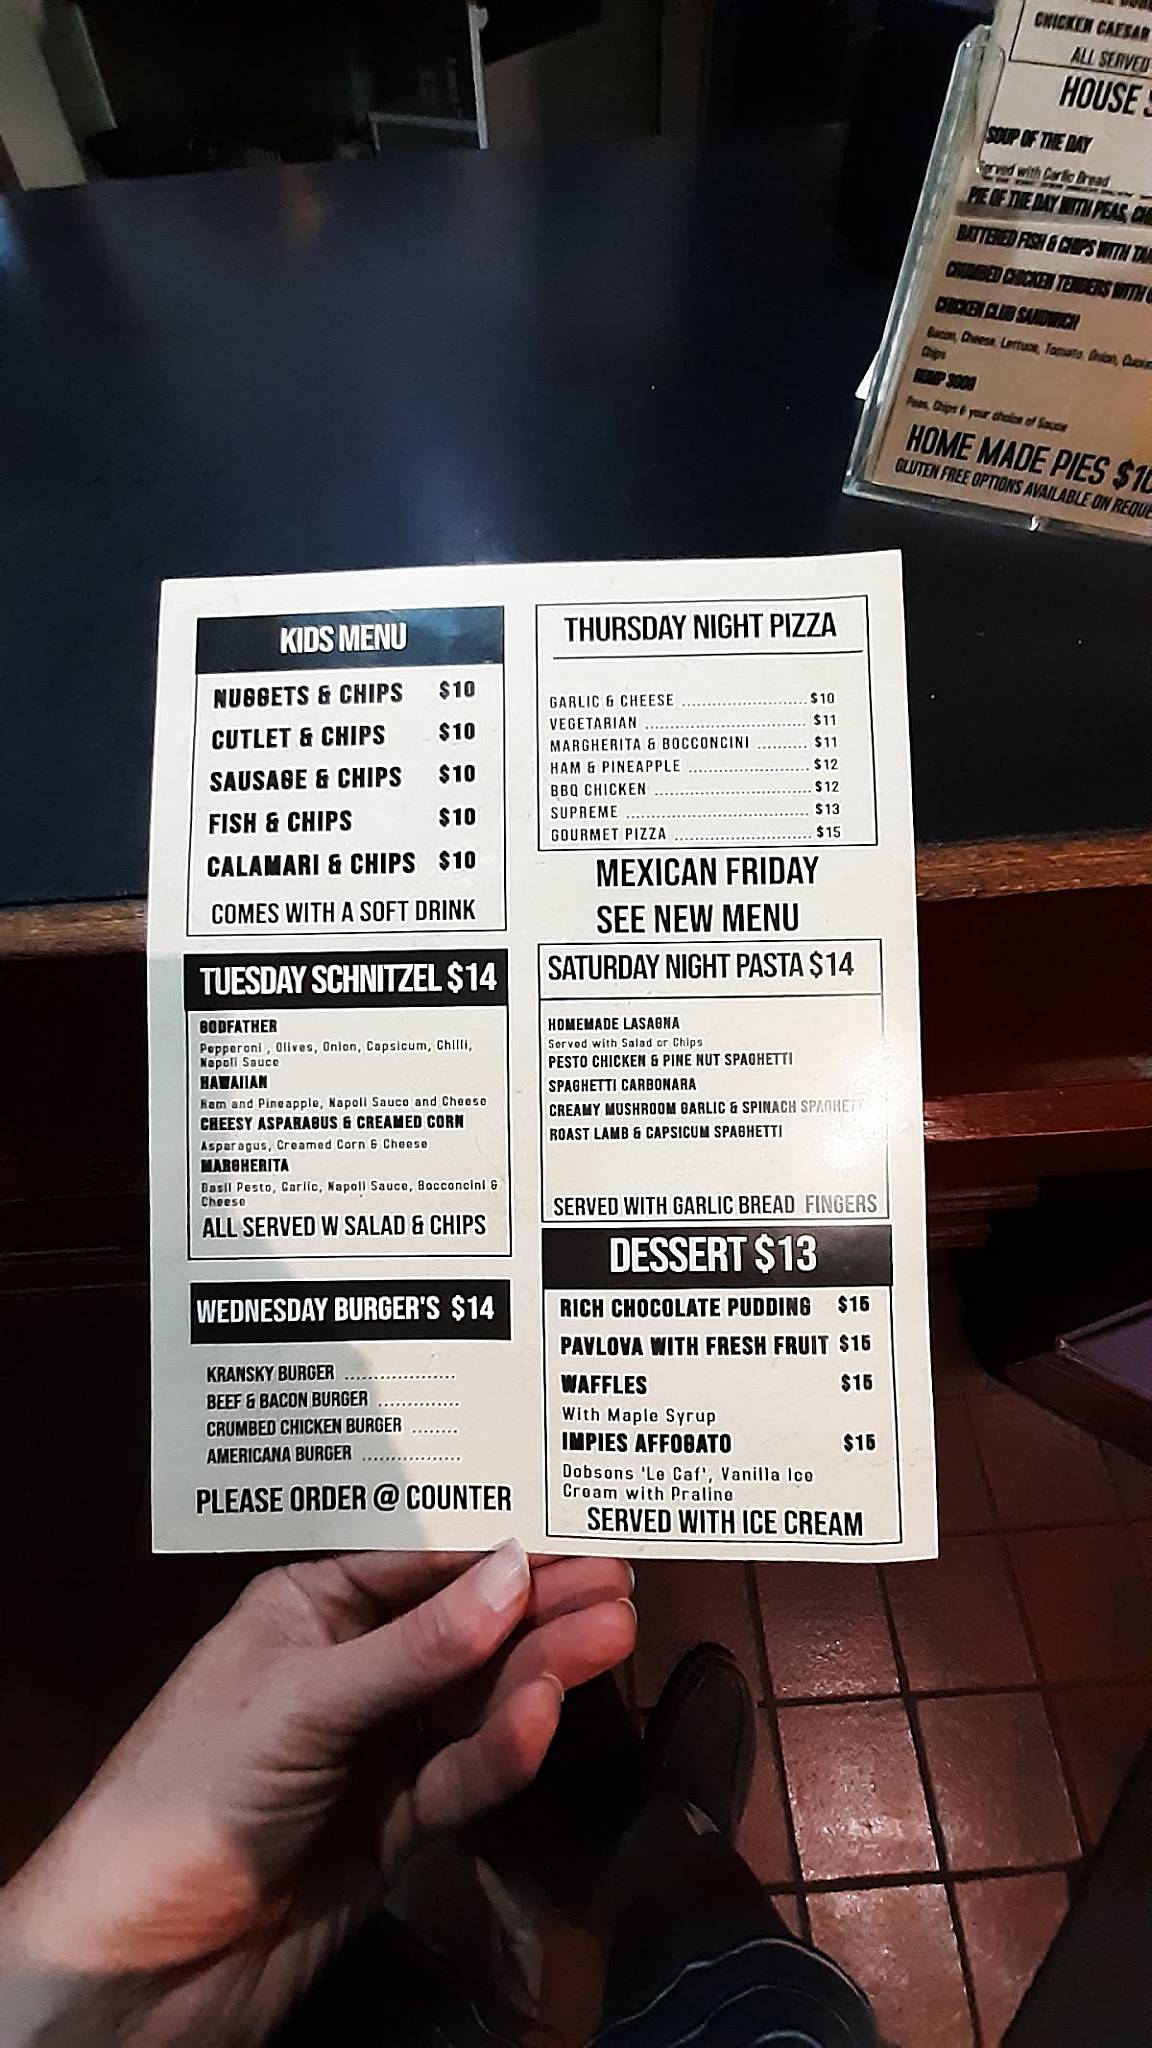 KIDS MENU
NUGGETS & CHIPS $10
CUTLET & CHIPS $10
SAUSAGE & CHIPS $10
FISH & CHIPS $10
CALAMARI & CHIPS $10
COMES WITH A SOFT DRINK
TUESDAY SCHNITZEL $14
GODFATHER
Pepperoni , Olives, Onion, Capsicum, Chilli,
Napoli Sauce
HAWAIIAN
Ham and Pineapple, Napoli Sauce and Cheese
CHEESY ASPARAGUS & CREAMED CORN
Asparagus, Creamed Corn & Cheese
MARGHERITA
Basil Pesto, Garlic, Napoli Sauce, Bocconcini &
Cheese
ALL SERVED W SALAD & CHIPS
WEDNESDAY BURGER'S $14
KRANSKY BURGER ....................
BEEF & BACON BURGER ..............
CRUMBED CHICKEN BURGER ........
AMERICANA BURGER .................
PLEASE ORDER @ COUNTER
THURSDAY NIGHT PIZZA
GARLIC & CHEESE ........................ $10
VEGETARIAN ............................... $11
MARGHERITA & BOCCONCINI .......... $11
HAM & PINEAPPLE ....................... $12
BBQ CHICKEN .............................. $12
SUPREME ................................... $13
GOURMET PIZZA .......................... $15
MEXICAN FRIDAY
SEE NEW MENU
SATURDAY NIGHT PASTA $14
HOMEMADE LASAGNA
Served with Salad or Chips
PESTO CHICKEN & PINE NUT SPAGHETTI
SPAGHETTI CARBONARA
CREAMY MUSHROOM GARLIC & SPINACH SPAGHETTI
ROAST LAMB & CAPSICUM SPAGHETTI
SERVED WITH GARLIC BREAD FINGERS
DESSERT $13
RICH CHOCOLATE PUDDING $15
PAVLOVA WITH FRESH FRUIT $15
WAFFLES $15
With Maple Syrup
IMPIES AFFOGATO $15
Dobsons 'Le Caf', Vanilla Ice
Cream with Praline
SERVED WITH ICE CREAM
CHICKEN CAESAR
ALL SERVED
HOUSE
SOUP OF THE DAY
Served with Garlic Bread
PIE OF THE DAY WITH PEAS,
BATTERED FISH & CHIPS WITH
CRUMBED CHICKEN TENDERS WITH
CHICKEN CLUB SANDWICH
Bacon, Cheese, Lettuce, Tomato, Onion,
Chips
RUMP 300G
Peas, Chips & your choice of Sauce
HOME MADE PIES
GLUTEN FREE OPTIONS AVAILABLE ON